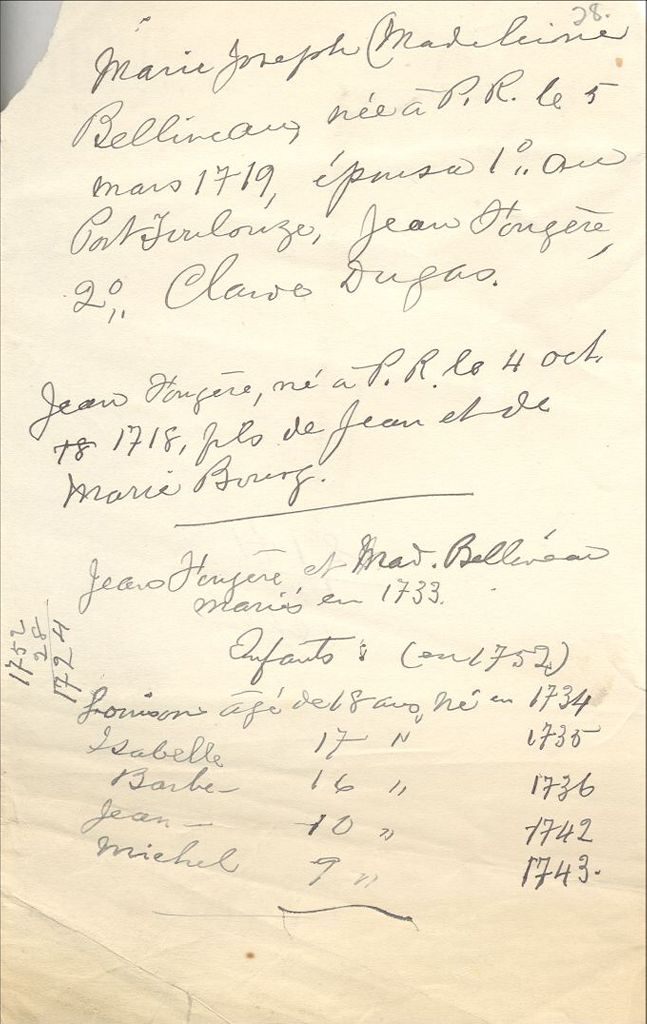 28.
Marie Joseph (Madeleine
Belliveau, née à P. R. le 5
mars 1719, épousa 1º,, au
Port Toulouze, Jean Fougère,
2º,, Claude Dugas.
Jean Fougère, né à P. R. le 4 oct.
18 1718, fils de Jean et de
Marie Bourg.
Jean Fougère et Mad. Belliveau
mariés en 1733.
Enfants : (en 1752)
Louison âgé de 18 ans, né en 1734
Isabelle 17 " 1735
Barbe - 16 " 1736
Jean - 10 " 1742
Michel 9 " 1743.
1752
28
1724